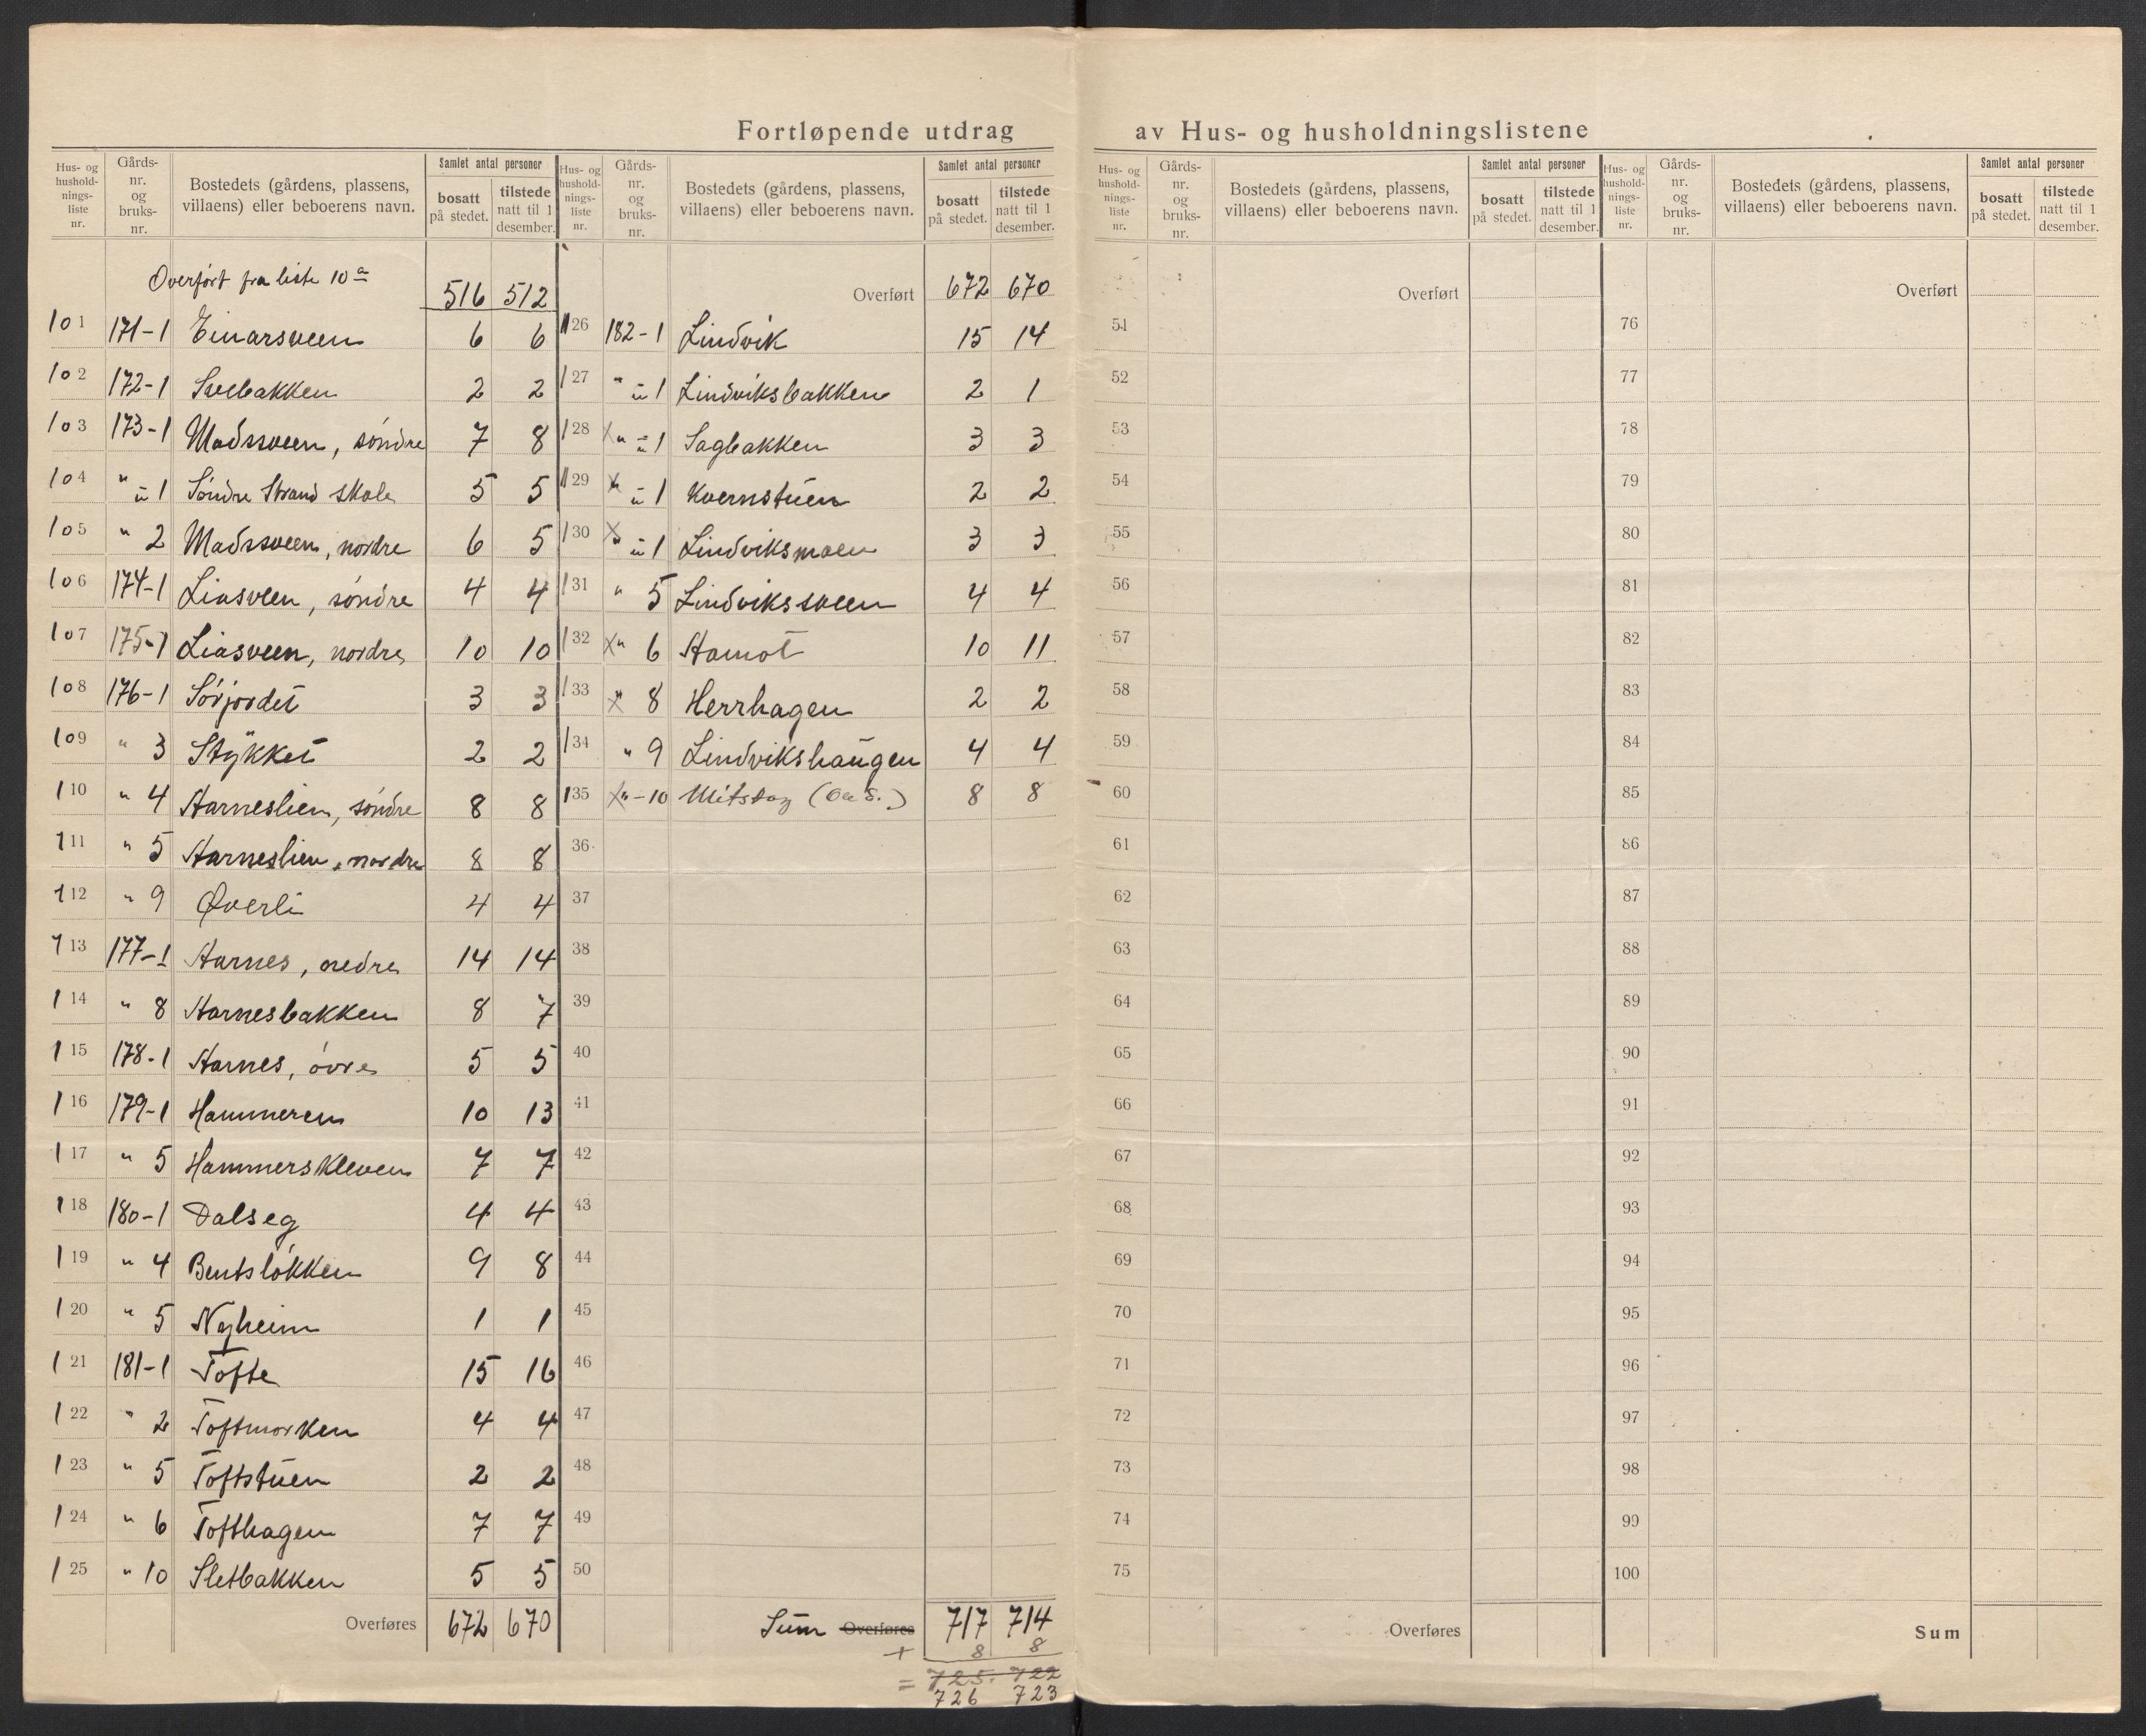 Fortløpende utdrag av Hus- og husholdningslistene
Hus- og hushold- nings- liste nr. | Gårds- nr. og bruks- nr. | Bostedets (gårdens, plassens, villaens) eller beboerens navn. | Samlet antal personer bosatt på stedet. | tilstede natt til 1 desember.
Overført fra liste 10a 516 512
101 171-1 Einarsveen 6 6
102 172-1 Svebakken 2 2
103 173-1 Madssveen, søndre 7 8
104 " " 1 Søndre Strand skole 5 5
105 " 2 Madssveen, nordre 6 5
106 174-1 Liasveen, søndre 4 4
107 175-1 Liasveen, nordre 10 10
108 176-1 Sørjordet 3 3
109 " 3 Stykket 2 2
110 " 4 Harneslien, søndre 8 8
111 " 5 Harneslien, nordre 8 8
112 " 9 Øverli 4 4
113 177-1 Harnes, nedre 14 14
114 " 8 Harnesbakken 8 7
115 178-1 Harnes, øvre 5 5
116 179-1 Hammeren 10 13
117 " 5 Hammerskleven 7 7
118 180-1 Dalseg 4 4
119 " 4 Bentsløkken 9 8
120 " 5 Nyheim 1 1
121 181-1 Tofte 15 16
122 " 2 Toftmorken 4 4
123 " 5 Toftstuen 2 2
124 " 6 Tofthagen 7 7
125 " 10 Sletbakken 5 5
Overføres 672 670
Hus- og hushold- nings- liste nr. | Gårds- nr. og bruks- nr. | Bostedets (gårdens, plassens, villaens) eller beboerens navn. | Samlet antal personer bosatt på stedet. | tilstede natt til 1 desember.
Overført 672 670
126 182-1 Lindvik 15 14
127 " " 1 Lindviksbakken 2 1
128 X " " 1 Sagbakken 3 3
129 X " " 1 Kvernstuen 2 2
130 X " " 1 Lindviksmoen 3 3
131 " 5 Lindvikssveen 4 4
132 X " 6 Hamot 10 11
133 X " 8 Herrhagen 2 2
134 " 9 Lindvikshaugen 4 4
135 X " -10 8 8
36
37
38
39
40
41
42
43
44
45
46
47
48
49
50
Sum Overføres 717 714
+ 8 8
= 725. 722
726 723
Hus- og hushold- nings- liste nr. | Gårds- nr. og bruks- nr. | Bostedets (gårdens, plassens, villaens) eller beboerens navn. | Samlet antal personer bosatt på stedet. | tilstede natt til 1 desember.
Overført
51
52
53
54
55
56
57
58
59
60
61
62
63
64
65
66
67
68
69
70
71
72
73
74
75
Overføres
Hus- og hushold- nings- liste nr. | Gårds- nr. og bruks- nr. | Bostedets (gårdens, plassens, villaens) eller beboerens navn. | Samlet antal personer bosatt på stedet. | tilstede natt til 1 desember.
Overført
76
77
78
79
80
81
82
83
84
85
86
87
88
89
90
91
92
93
94
95
96
97
98
99
100
Sum